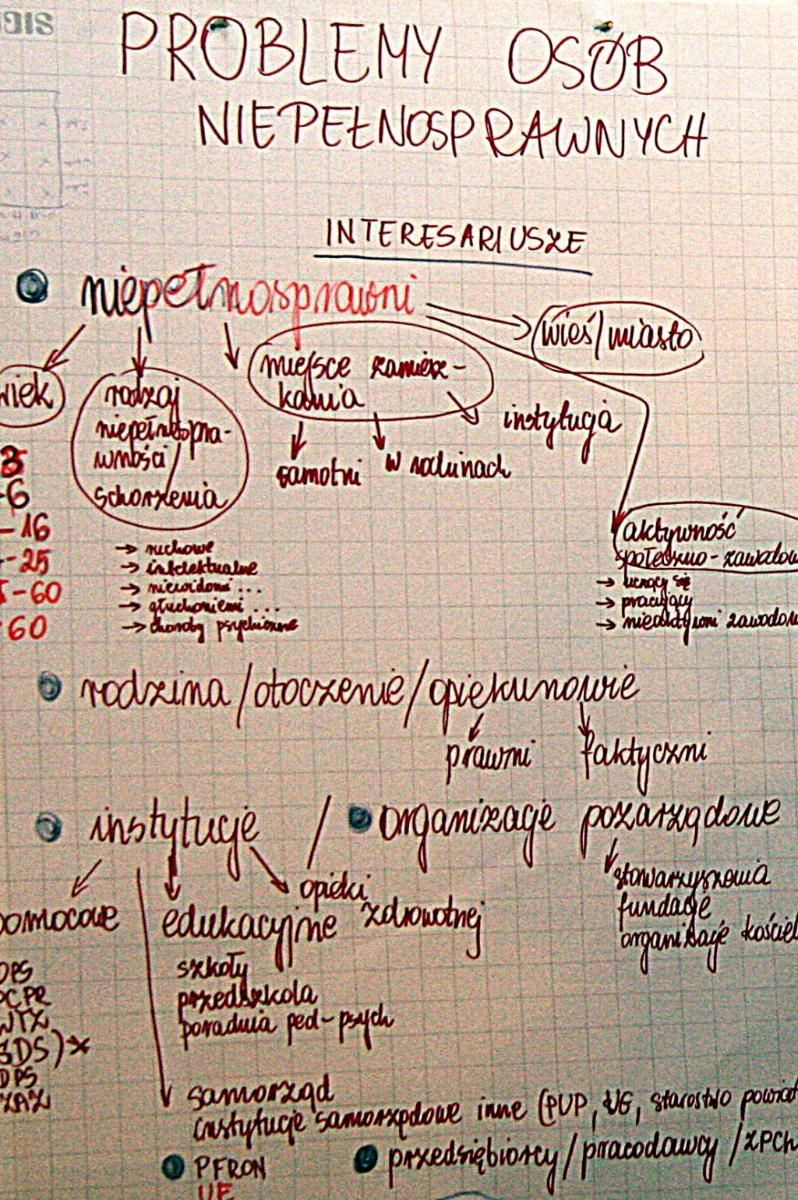 PROBLEMY OSÓB
NIEPEŁNOSPRAWNYCH
INTERESARIUSZE
niepełnosprawni
wieś/miasto
wiek
rodzaj
niepełnospra-
wności/
schorzenia
miejsce zamiesz-
kania
instytucja
samotni
w rodzinach
3
-6
-16
-25
-60
60
→ ruchowe
→ intelektualne
→ niewidomi ...
→ głuchoniemi ...
→ choroby psychiczne
aktywność
społeczno-zawodow
→ uczący się
→ pracujący
→ nieaktywni zawodow
rodzina/otoczenie/opiekunowie
prawni
faktyczni
instytucje / organizacje pozarządowe
pomocowe
edukacyjne
opieki
zdrowotnej
stowarzyszenia
fundacje
organizacje kościel
szkoły
przedszkola
poradnia ped-psych
OPS
PCPR
WTZ
ŚDS)*
DPS
ZAZ
samorząd
instytucje samorzędowe inne (PUP, UG, starostwo powiat
PFRON
UE
przedsiębiorcy/pracodawcy/ZPCh